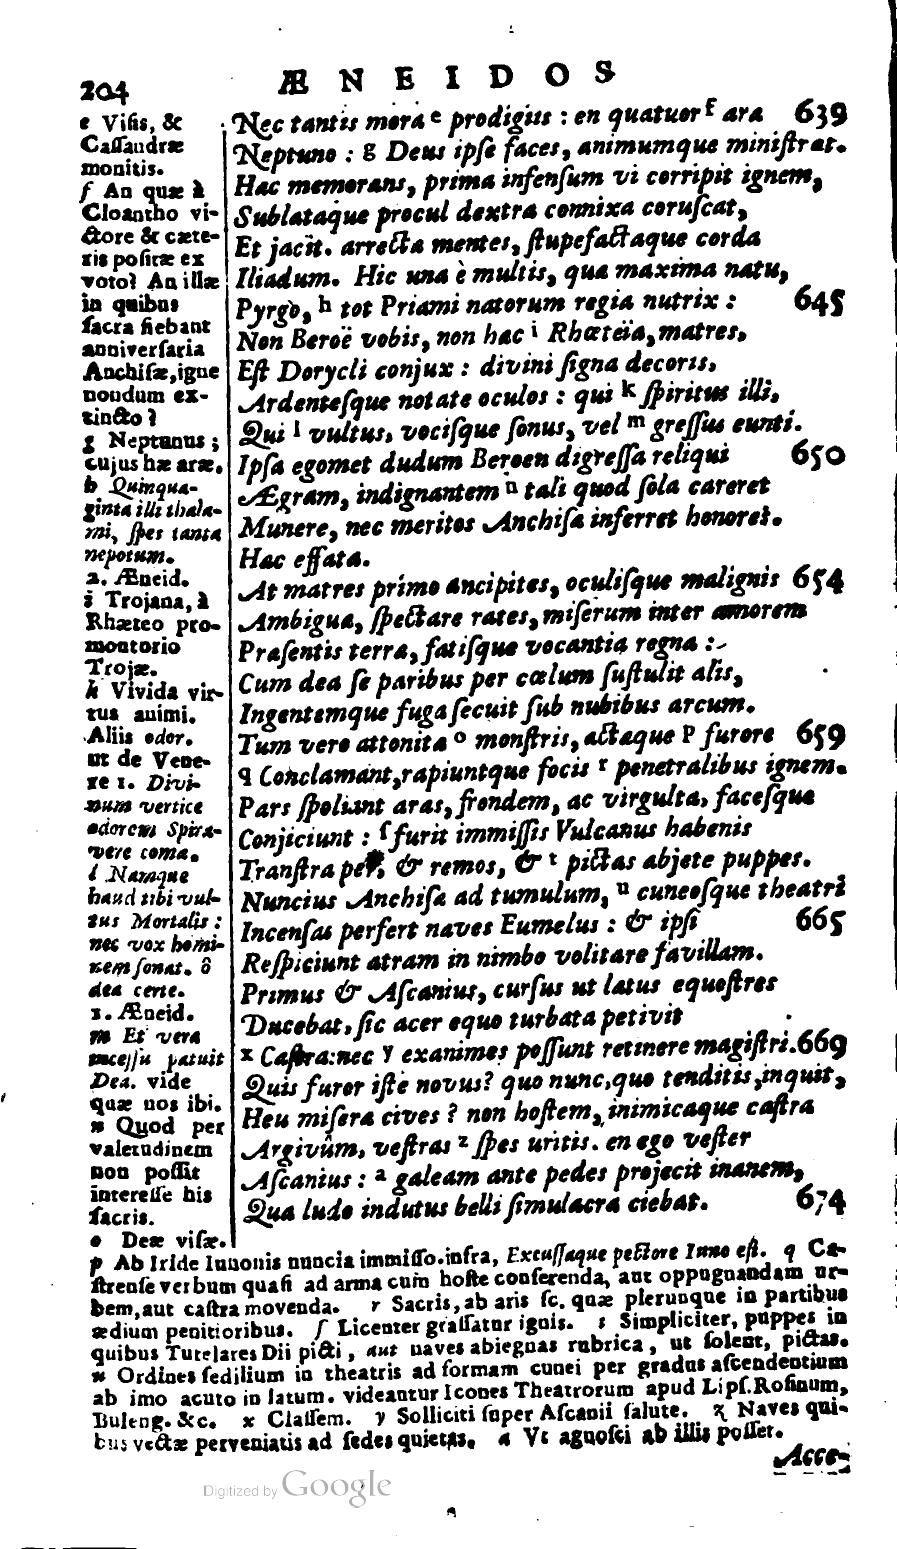 204
ÆNEIDOS
Nec tantis mora e prodigiis : en quatuor f aræ 639
Neptuno : g Deus ipſe faces, animumque miniſtrat.
Hæc memorans, prima infenſum vi corripit ignem,
Sublataque procul dextra connixa coruſcat,
Et jacit. arrectæ mentes, ſtupefactaque corda
Iliadum. Hic una è multis, quæ maxima natu,
Pyrgo, h tot Priami natorum regia nutrix : 645
Non Beroë vobis, non hæc i Rhœteïa, matres,
Eſt Dorycli conjux : divini ſigna decoris,
Ardenteſque notate oculos : qui k ſpiritus illi,
Qui l vultus, vociſque ſonus, vel m greſſus eunti.
Ipſa egomet dudum Beroen digreſſa reliqui 650
Ægram, indignantem n tali quod ſola careret
Munere, nec meritos Anchiſæ inferret honores.
Hæc effata.
At matres primo ancipites, oculiſque malignis 654
Ambiguæ, ſpectare rates, miſerum inter amorem
Præſentis terræ, fatiſque vocantia regna :
Cum dea ſe paribus per cœlum ſuſtulit alis,
Ingentemque fuga ſecuit ſub nubibus arcum.
Tum vero attonitæ o monſtris, actæque p furore 659
q Conclamant, rapiuntque focis r penetralibus ignem.
Pars ſpoliant aras, frondem, ac virgulta, faceſque
Conjiciunt : ſ furit immiſſis Vulcanus habenis
Tranſtra per, & remos, & t pictas abjete puppes.
Nuncius Anchiſæ ad tumulum, u cuneoſque theatri
Incenſas perfert naves Eumelus : & ipſi 665
Reſpiciunt atram in nimbo volitare favillam.
Primus & Aſcanius, curſus ut lætus equeſtres
Ducebat, ſic acer equo turbata petivit
x Caſtra: nec y exanimes poſſunt retinere magiſtri. 669
Quis furor iſte novus? quo nunc, quo tenditis, inquit,
Heu miſeræ cives ? non hoſtem, inimicaque caſtra
Argivûm, veſtras z ſpes uritis. en ego veſter
Aſcanius : a galeam ante pedes projecit inanem,
Qua ludo indutus belli ſimulacra ciebat. 674
e Viſis, &
Caſſandræ
monitis.
f An quæ à
Cloantho vi-
ctore & cæte-
ris poſitæ ex
voto? An illæ
in quibus
ſacra fiebant
anniverſaria
Anchiſæ, igne
nondum ex-
tincto ?
g Neptunus ;
cujus hæ aræ.
h Quinqua-
ginta illi thala-
mi, ſpes tanta
nepotum.
2. Æneid.
i Trojana, à
Rhæteo pro-
montorio
Trojæ.
k Vivida vir-
tus animi.
Aliis odor.
ut de Vene-
re 1. Divi-
num vertice
odorem Spira-
vere comæ.
l Namque
haud tibi vul-
tus Mortalis :
nec vox homi-
nem ſonat. ô
dea certe.
1. Æneid.
m Et vera
inceſſu patuit
Dea. vide
quæ nos ibi.
n Quod per
valetudinem
non poſſit
intereſſe his
ſacris.
o Deæ viſæ.
p Ab Iride Iunonis nuncia immiſſo. infra, Excuſſaque pectore Iuno eſt. q Ca-
ſtrenſe verbum quaſi ad arma cum hoſte conferenda, aut oppugnandam ur-
bem, aut caſtra movenda. r Sacris, ab aris ſc. quæ plerunque in partibus
ædium penitioribus. ſ Licenter graſſatur ignis. t Simpliciter, puppes in
quibus Tutelares Dii picti, aut naves abiegnas rubrica, ut ſolent, pictas.
u Ordines ſedilium in theatris ad formam cunei per gradus aſcendentium
ab imo acuto in latum. videantur Icones Theatrorum apud Lipſ. Roſinum,
Buleng. &c. x Claſſem. y Solliciti ſuper Aſcanii ſalute. z Naves qui-
bus vectæ perveniatis ad ſedes quietas. a Vt agnoſci ab illis poſſet.
Acce-
Digitized by Google